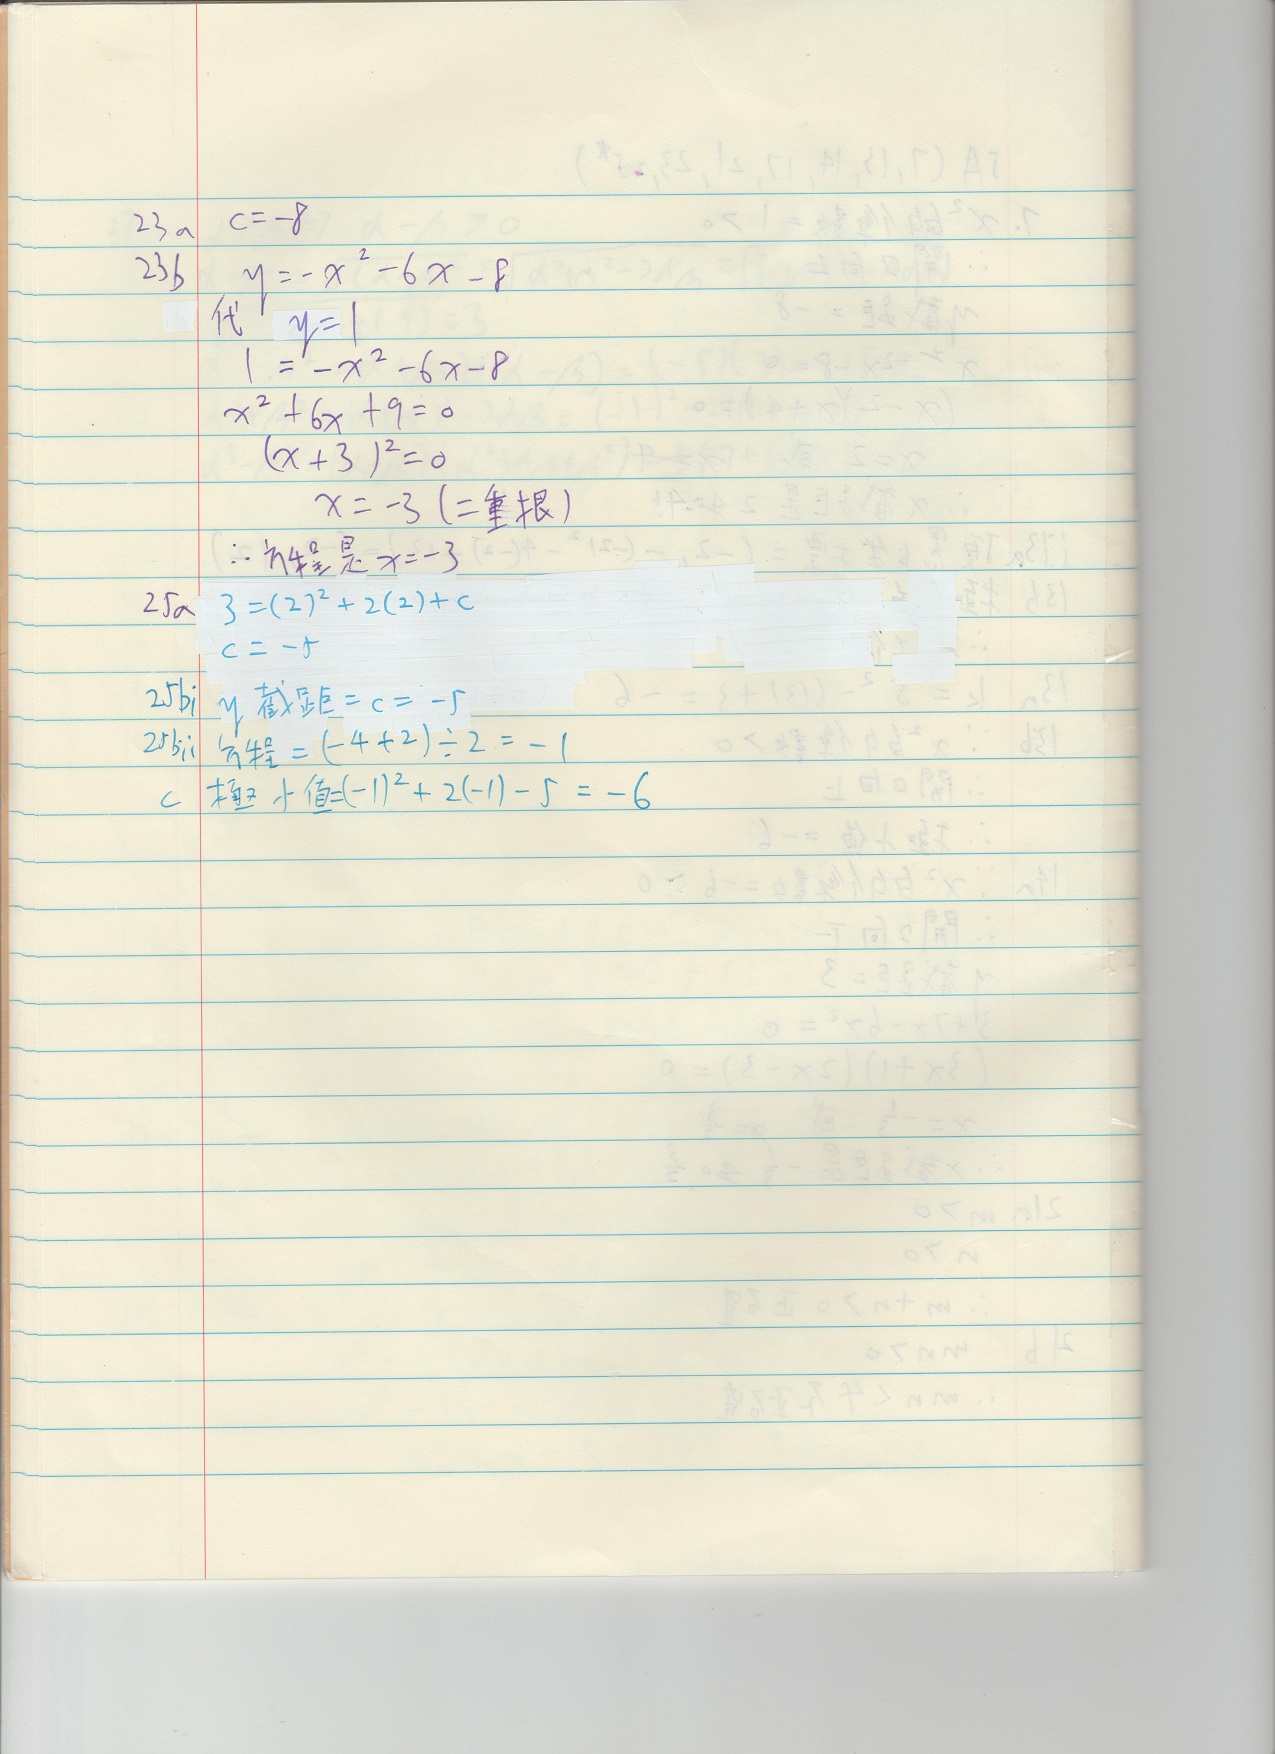 23a c = -8
23b y = -x² - 6x - 8
代 y = 1
1 = -x² - 6x - 8
x² + 6x + 9 = 0
(x + 3)² = 0
x = -3 (二重根)
∴ 方程是 x = -3
25a 3 = (2)² + 2(2) + c
c = -5
25bi y 截距 = c = -5
25bii 方程 = (-4 + 2) ÷ 2 = -1
c 極小值 = (-1)² + 2(-1) - 5 = -6